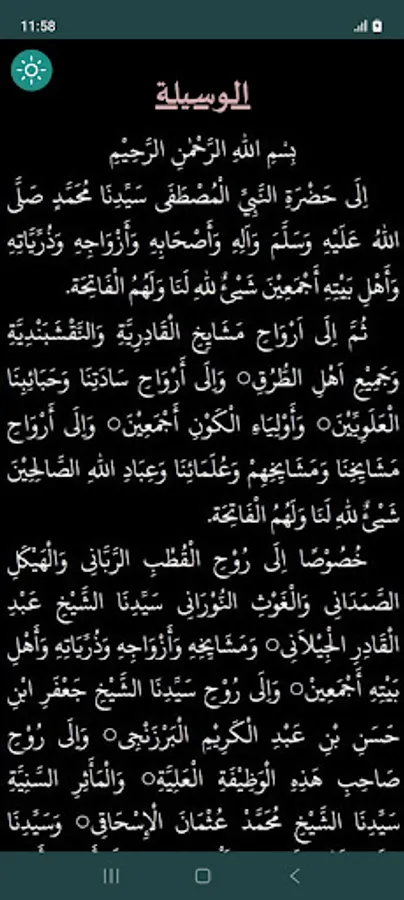 11:58
الوسيلة
بِسْمِ اللهِ الرَّحْمٰنِ الرَّحِيْمِ
اِلَى حَضْرَةِ النَّبِيِّ الْمُصْطَفَى سَيِّدِنَا مُحَمَّدٍ صَلَّى
اللهُ عَلَيْهِ وَسَلَّمَ وَآلِهِ وَأَصْحَابِهِ وَأَزْوَاجِهِ وَذُرِّيَّاتِهِ
وَأَهْلِ بَيْتِهِ أَجْمَعِيْنَ شَيْئٌ لِلهِ لَنَا وَلَهُمُ الْفَاتِحَة.
ثُمَّ اِلَى اَرْوَاحِ مَشَايِخِ الْقَادِرِيَّةِ وَالنَّقْشَبَنْدِيَّةِ
وَجَمِيْعِ اَهْلِ الطُّرُقِ○ وَاِلَى أَرْوَاحِ سَادَتِنَا وَحَبَائِبِنَا
الْعَلَوِيِّيْنَ○ وَأَوْلِيَاءِ الْكَوْنِ أَجْمَعِيْنَ○ وَاِلَى أَرْوَاحِ
مَشَايِخِنَا وَمَشَايِخِهِمْ وَعُلَمَائِنَا وَعِبَادِ اللهِ الصَّالِحِيْنَ
شَيْئٌ لِلهِ لَنَا وَلَهُمُ الْفَاتِحَة.
خُصُوْصًا اِلَى رُوْحِ الْقُطْبِ الرَّبَّانِى وَالْهَيْكَلِ
الصَّمَدَانِى وَالْغَوْثِ النُّوْرَانِى سَيِّدِنَا الشَّيْخِ عَبْدِ
الْقَادِرِ الْجِيْلَانِى○ وَمَشَايِخِهِ وَأَزْوَاجِهِ وَذُرِّيَّاتِهِ وَأَهْلِ
بَيْتِهِ أَجْمَعِيْنَ○ وَاِلَى رُوْحِ سَيِّدِنَا الشَّيْخِ جَعْفَرِ ابْنِ
حَسَنِ بْنِ عَبْدِ الْكَرِيْمِ الْبَرْزَنْجِى○ وَاِلَى رُوْحِ
صَاحِبِ هَذِهِ الْوَظِيْفَةِ الْعَلِيَّةِ○ وَالْمَأٰثِرِ السَّنِيَّةِ
سَيِّدِنَا الشَّيْخِ مُحَمَّدْ عُثْمَانَ الْإِسْحَاقِى○ وَسَيِّدِنَا